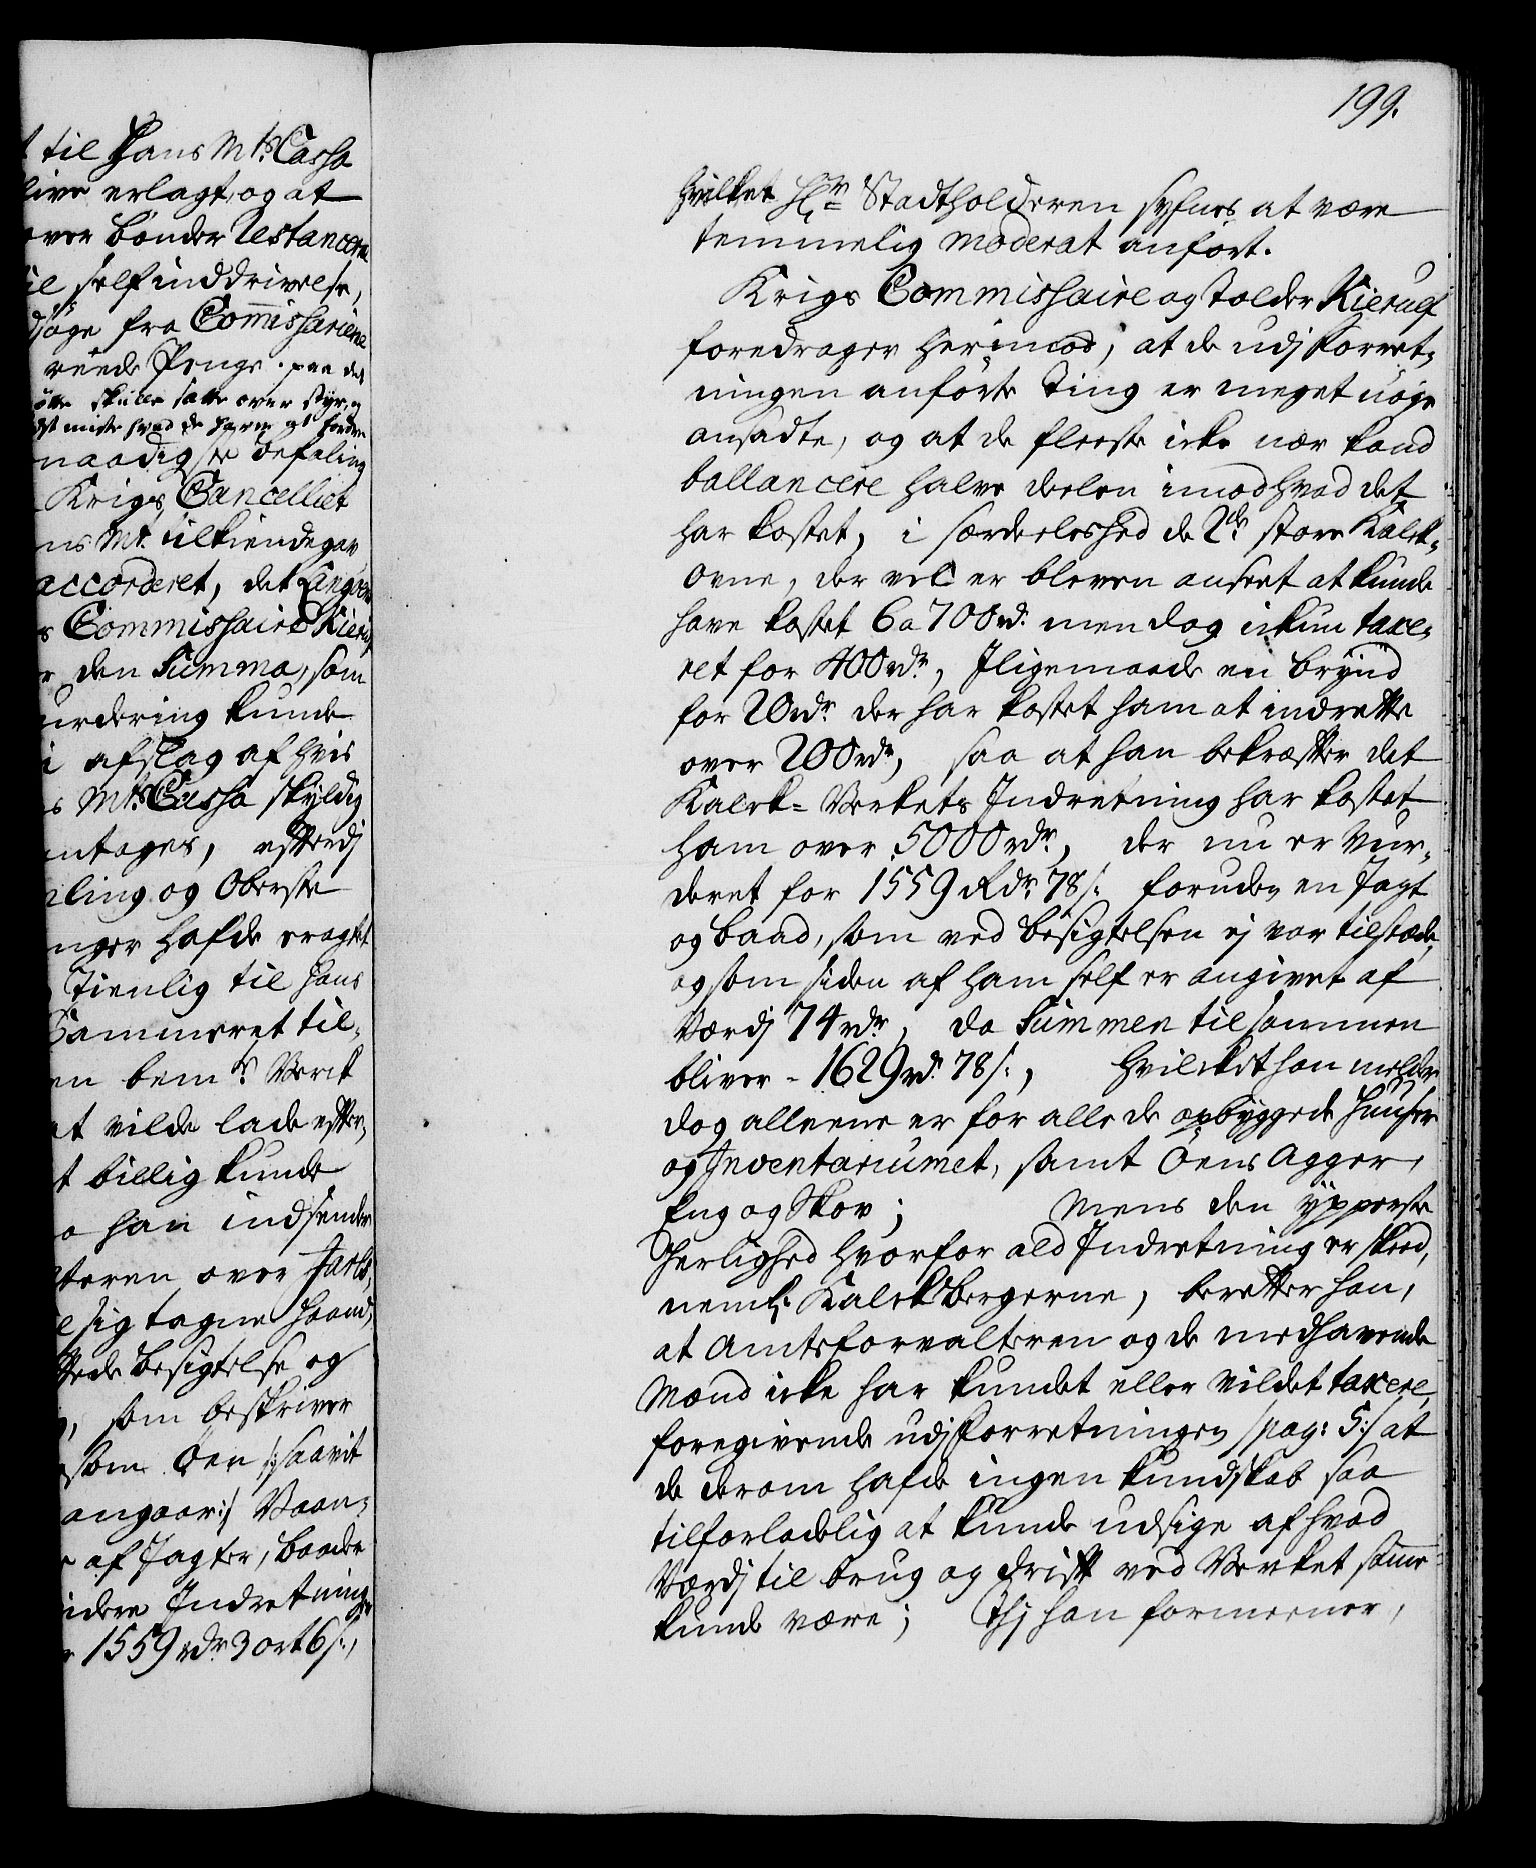 til Hans Mts Cassa
blive erlagt, og at
over bønder Restancerne
til self inddrivelse,
fra Commissariene
Penge. paa det
skulle sætte over styr, og
miste hvad de hare at fordre
naadigste befaling
Krigs Cancelliet
Mt. tilkiendegav
accorderet, det
Commissaire Kierulf
den Summa, som
urdering kunde
i afslag af hvis
Mts Cassa skyldig
antages, efterdj
og Oberste
hafde eragtet
tienlig til Hans
Cammeret til-
bemte Verck
at vilde lade efter-
billig kunde
han indsender
over
sig tagne Haand,
besigtelse og
som beskriver
som Øen /: saavit
angaar :/ Vaan-
af Jagter, baader
videre Indretninger
1559 rdr 3 ort 6 s:,
199.
Hvilket Hr. Stadtholderen synes at være
temmelig moderat anført.
Krigs Commissaire og Tolder Kierulf
foredrager herimod, at de udj forret-
ningen anførte Ting er meget nøye
ansadte, og at de fleeste icke nær kand
ballancere halve deelen imod hvad det
har kostet, i særdeleshed de 2de store Kalck-
Ovne, der vel er bleven anseet at kunde
have kostet 6 a 700 rdr. men dog ickun taxe-
ret for 400 rdr., Iligemaade en brynd
for 20 rdr. der har kostet ham at indrette
over 200 rdr, saa at han bekræfter det
Kalck-Verkets Indretning har kostet
ham over 5000 rdr, der nu er Vur-
deret for 1559 Rdr. 78 s: foruden en Jagt
og baad, som ved besigtelsen ej var tilstæde,
og som siden af ham self er angivet af
Værdj 74 rdr, da Summen tilsammen
bliver - 1629 rdr. 78 s:, Hvilcket han melder
dog alleene er for alle de opbyggede Huuser
og Inventariumet, samt Øens Agger,
Eng og Skov; Mens den ypperste
Herlighed hvorfor ald Indretning er skeed,
neml: Kalckbergerne, beretter han,
at Amtsforvalteren og de medhavende
Mænd icke har kundet eller Vildet taxere,
foregivende udj forretningen /pag: 5:/ at
de derom hafde ingen kundskab saa
tilforladelig at kunde udsige af hvad
Værdj til brug og drift ved Verket samme
kunde være; Thj han formeener,